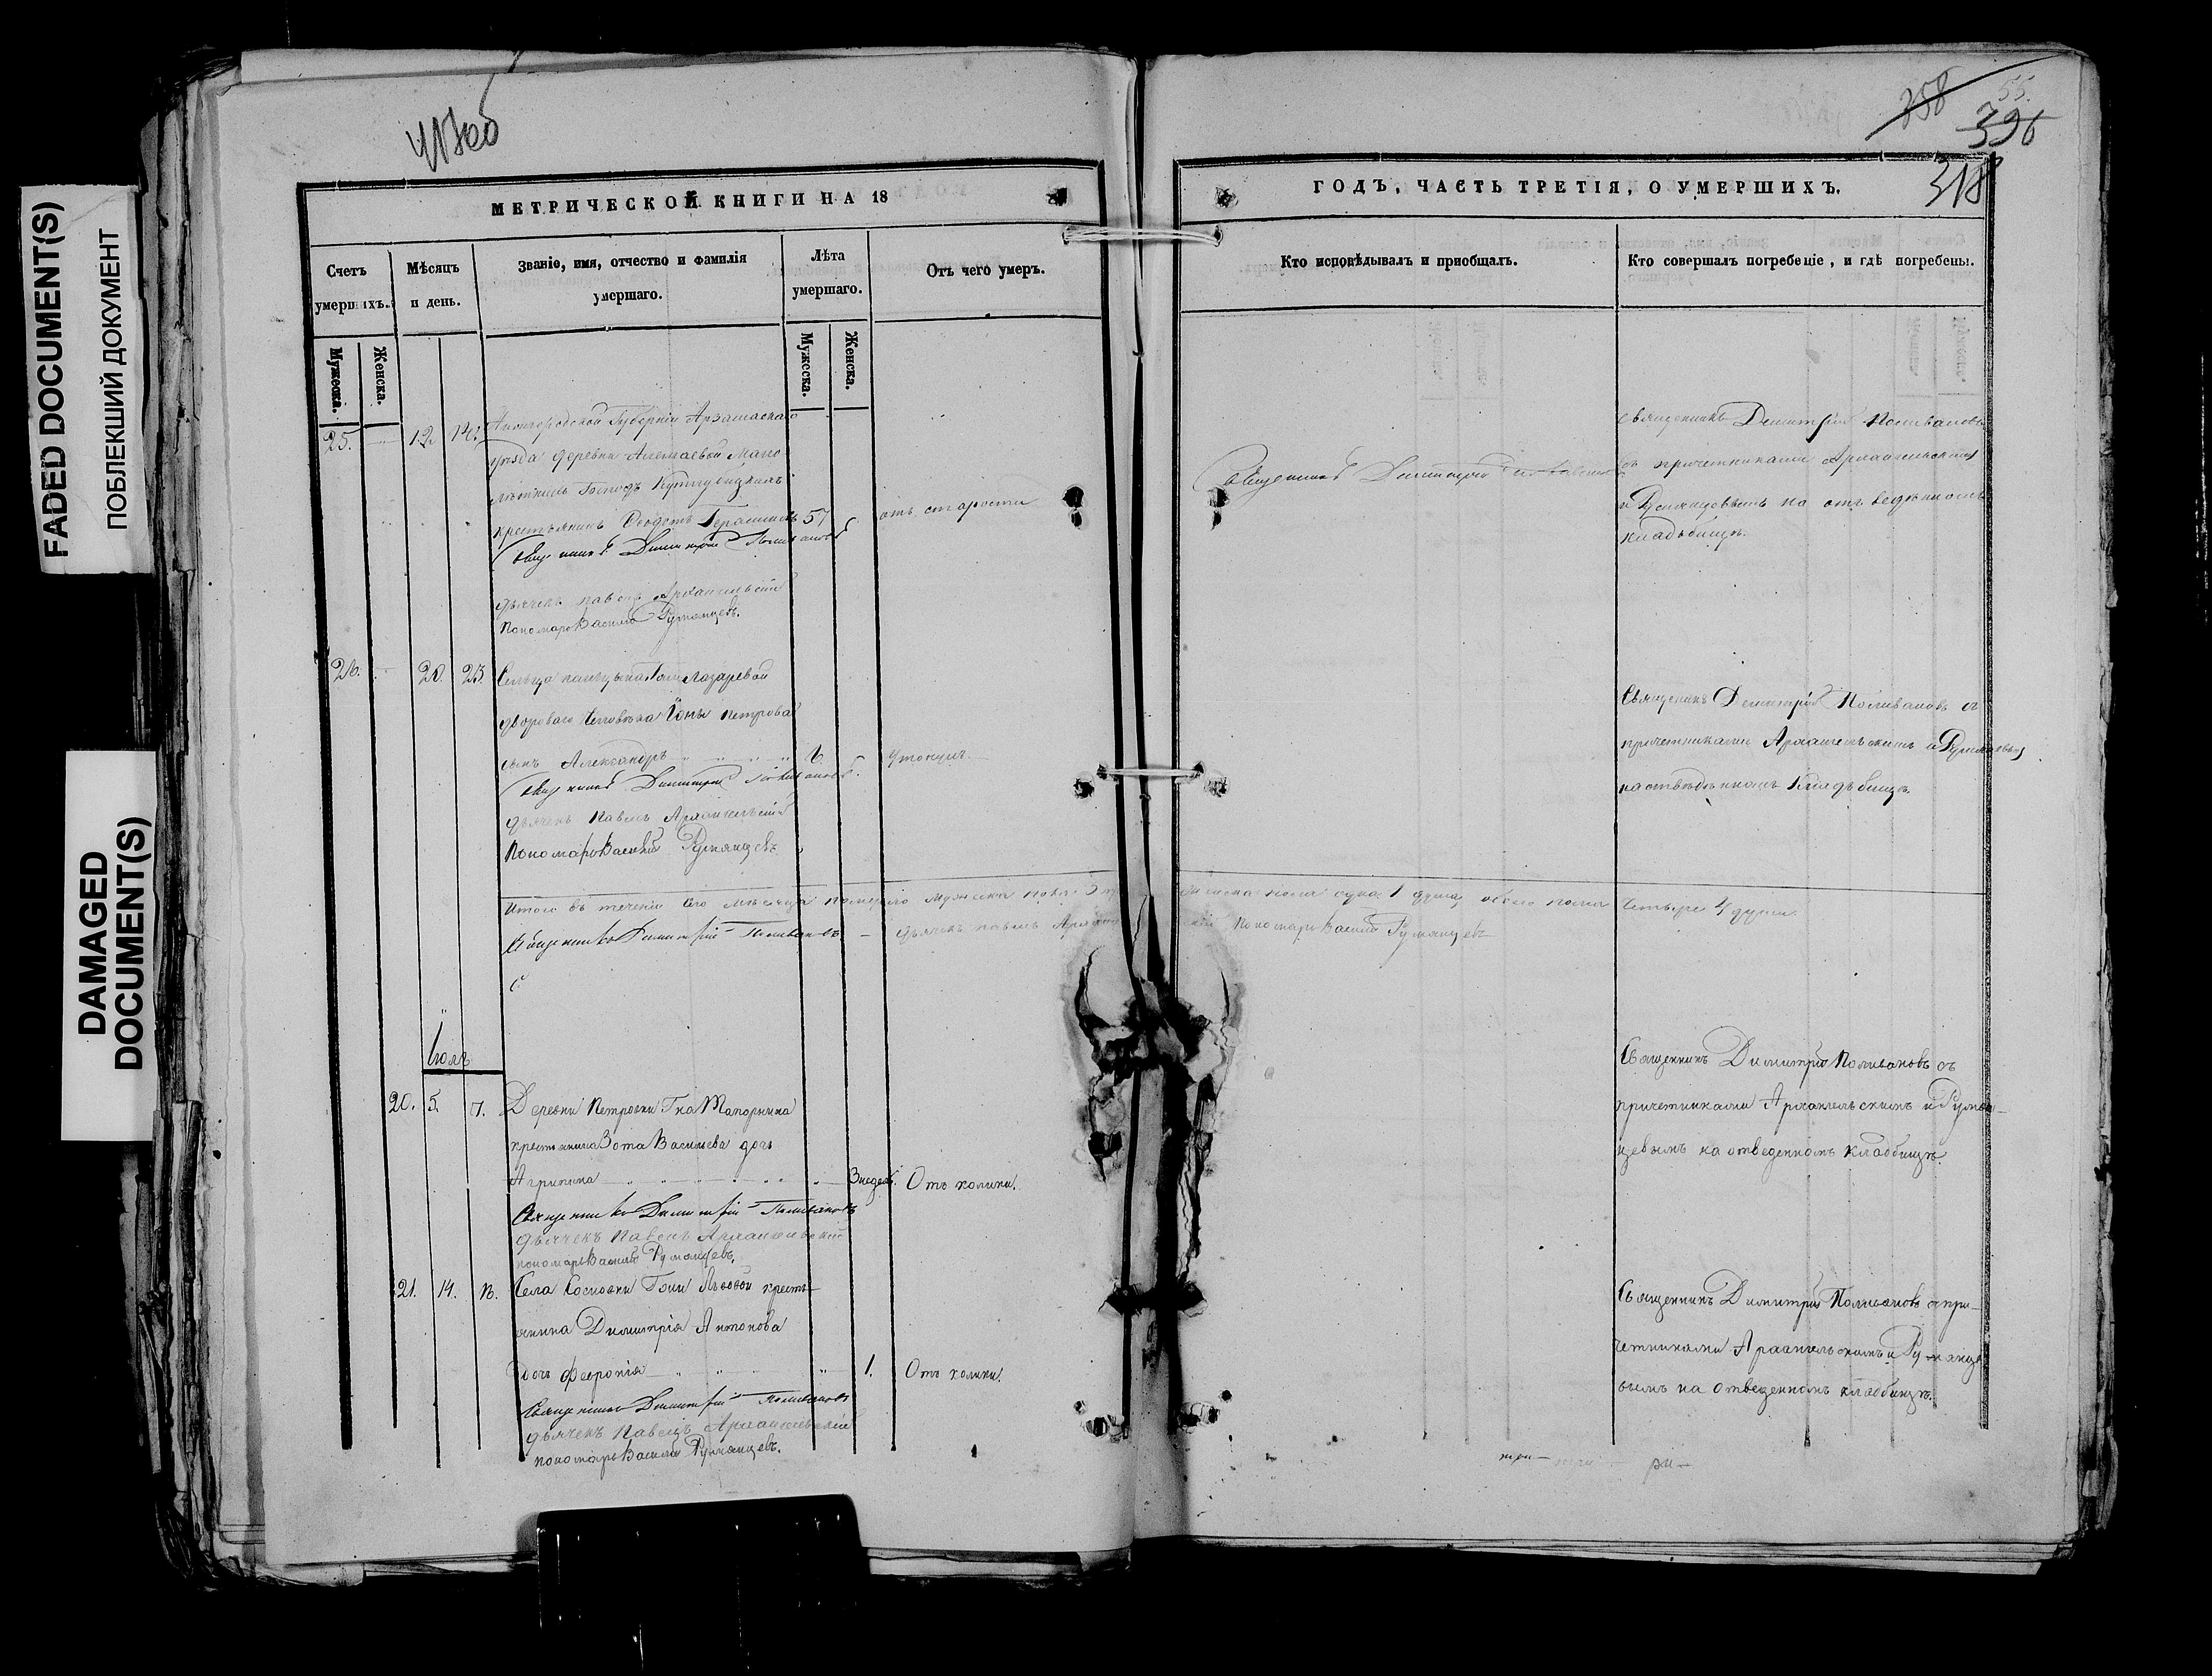 FADED DOCUMENT(S)
ПОБЛЕКШИЙ ДОКУМЕНТ
DAMAGED
DOCUMENT(S)
258
55.
396
318
МЕТРИЧЕСКОЙ КНИГИ НА 18
Счетъ
умершихъ.
Мѣсяцъ
и день.
Званіе, имя, отчество и фамилія
умершаго.
Лѣта
умершаго.
Отъ чего умеръ.
Мужеска.
Женска.
Мужеска.
Женска.
25. 12 14.
Губерніи Арзамаскаго
уѣзда деревни
крестьянинъ Ѳедотъ Герасимовъ 57 отъ старости
Священникъ Димитрій Поливановъ
дьячекъ Павелъ Архангельскій
Пономарь Василій Румянцевъ.
26. 20. 23. Сельца Гжи Лазаревой
двороваго человѣка Іоны Петрова
сынъ Александръ 6. утонулъ.
Священникъ Димитрій Поливановъ.
дьячекъ Павелъ Архангельскій
Пономарь Василій Румянцевъ
Итого въ теченіи сего мѣсяца померло мужеска пола 3 женска пола одна 1 душа, обоего пола четыре 4 души.
Священникъ Димитрій Поливановъ – дьячекъ Павелъ Архангельскій Пономарь Василій Румянцевъ
Іюль
20. 5. 7. Деревни Петровки Гна Топорнина
крестьянина Зота Васильева дочь
Агрипина 3 недел. Отъ колики.
Священникъ Димитрій Поливановъ
дьячекъ Павелъ Архангельскій
пономарь Василій Румянцевъ.
21. 14. 16. Села Сосновки Гжи Львовой кресть-
янина Димитрія Антонова
дочь Феѵронія 1. Отъ колики.
Священникъ Димитрій Поливановъ
дьячекъ Павелъ Архангельскій
пономарь Василій Румянцевъ.
ГОДЪ, ЧАСТЬ ТРЕТІЯ, О УМЕРШИХЪ.
Кто исповѣдывалъ и пріобщалъ.
Кто совершалъ погребеніе, и гдѣ погребены.
Священникъ Димитрій Поливановъ
Священникъ Димитрій Поливановъ
съ причетниками Архангельскимъ
и Румянцовымъ на отведенномъ
кладбищѣ.
Священникъ Димитрій Поливановъ съ
причетниками Архангельскимъ и Румянцевымъ
на отведенномъ кладбищѣ
Священникъ Димитрій Поливановъ съ
причетниками Архангельскимъ и Румян-
цевымъ на отведенномъ кладбищѣ.
Священникъ Димитрій Поливановъ с при-
четниками Архангельскимъ и Румянце
вымъ на отведенномъ кладбищѣ.